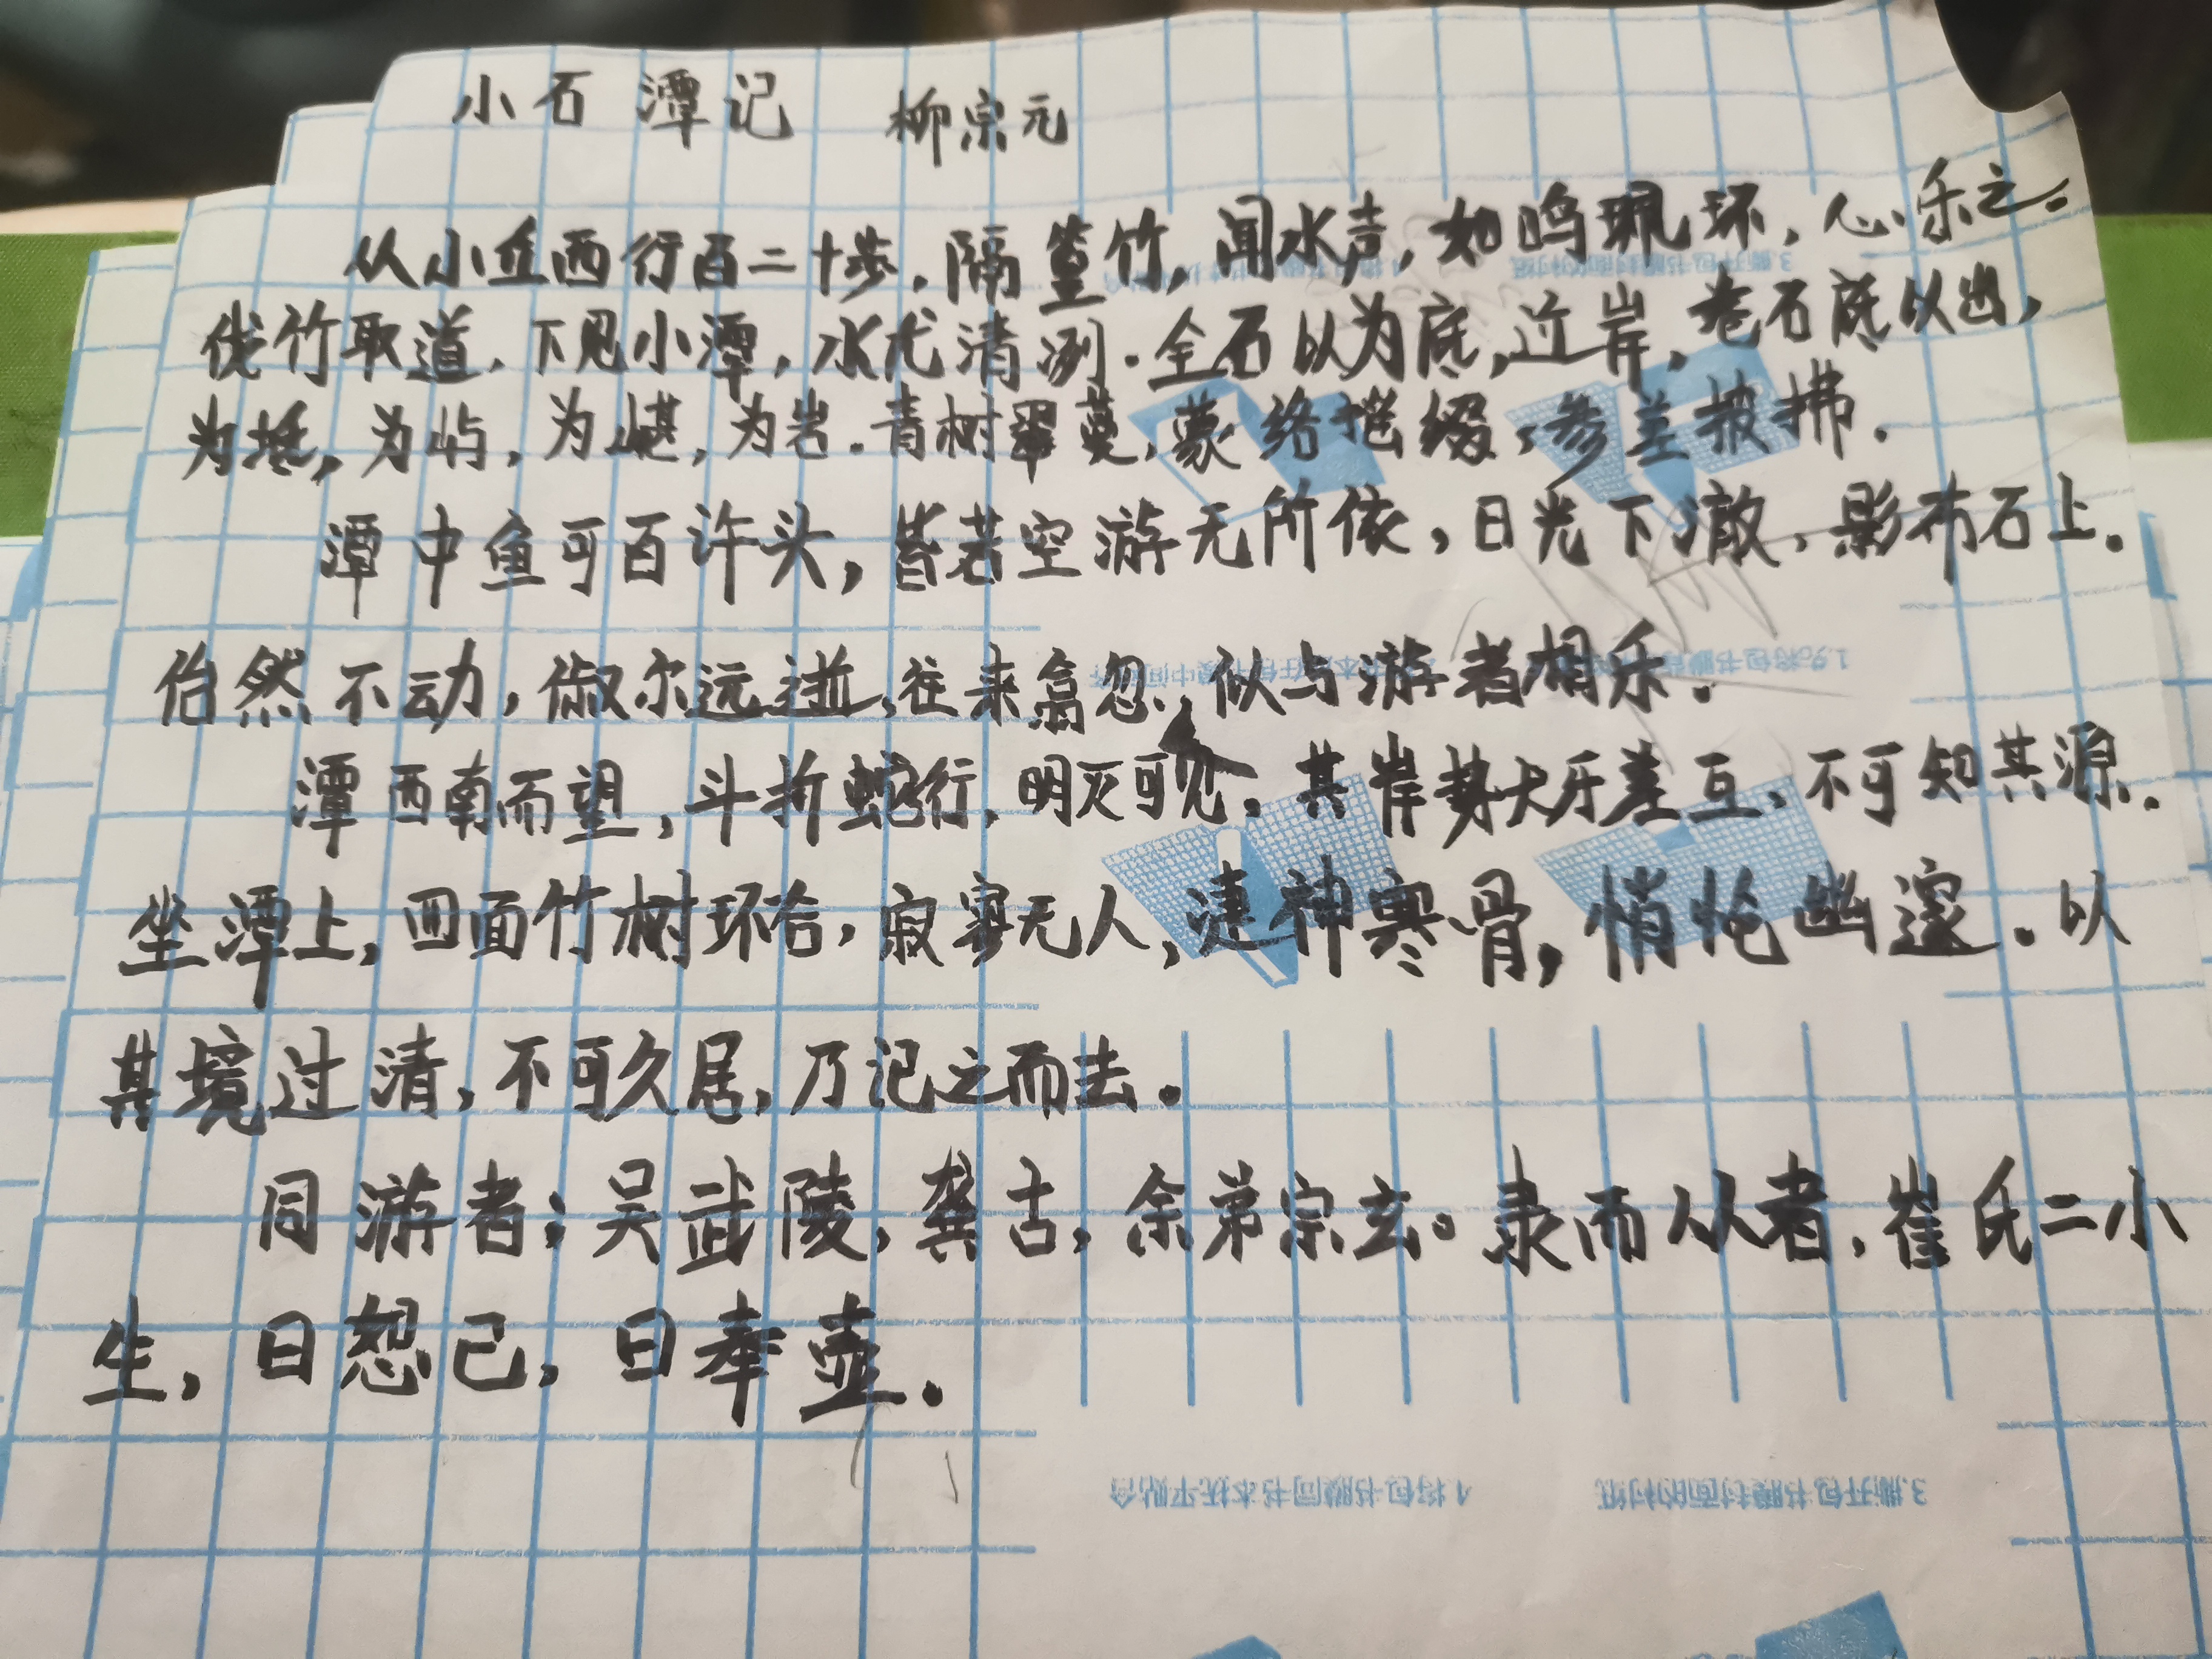 小石潭记 柳宗元
从小丘西行百二十步,隔篁竹,闻水声,如鸣珮环,心乐之。
伐竹取道,下见小潭,水尤清冽.全石以为底,近岸,卷石底以出,
为坻,为屿,为嵁,为岩.青树翠蔓,蒙络摇缀,参差披拂.
潭中鱼可百许头,皆若空游无所依,日光下澈,影布石上.
佁然不动,俶尔远逝,往来翕忽,似与游者相乐.
潭西南而望,斗折蛇行,明灭可见,其岸势犬牙差互,不可知其源.
坐潭上,四面竹树环合,寂寥无人,凄神寒骨,悄怆幽邃.以
其境过清,不可久居,乃记之而去.
同游者;吴武陵,龚古,余弟宗玄。隶而从者,崔氏二小
生,曰恕己,曰奉壹.
3.撕开包书膜封面的衬纸
4.将包书膜同书本抚平贴合